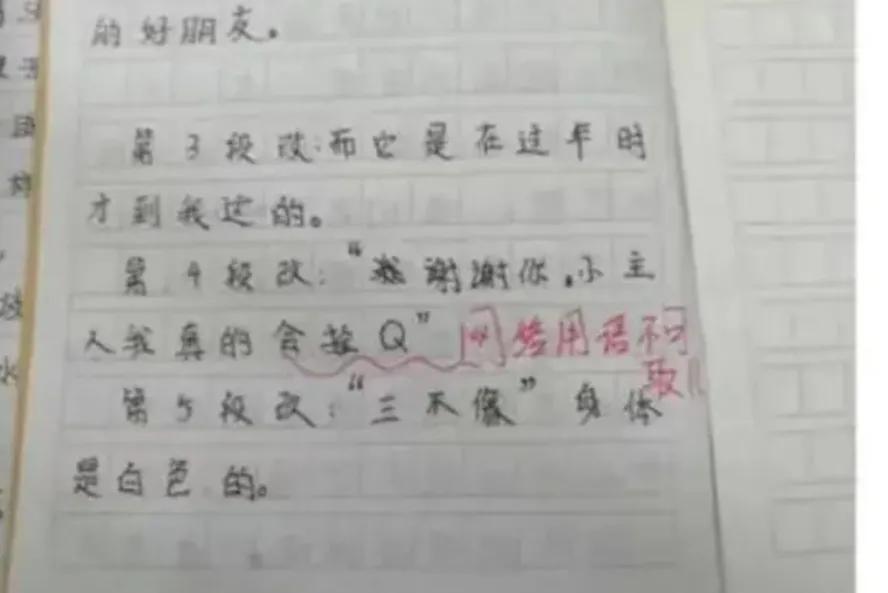 的好朋友。
第3段改:而它是在过年时
才到我这的。
第4段改:“谢谢你,小主
人我真的会 Q” 网络用语不可
取!!
第5段改:“三不像”身体
是白色的。